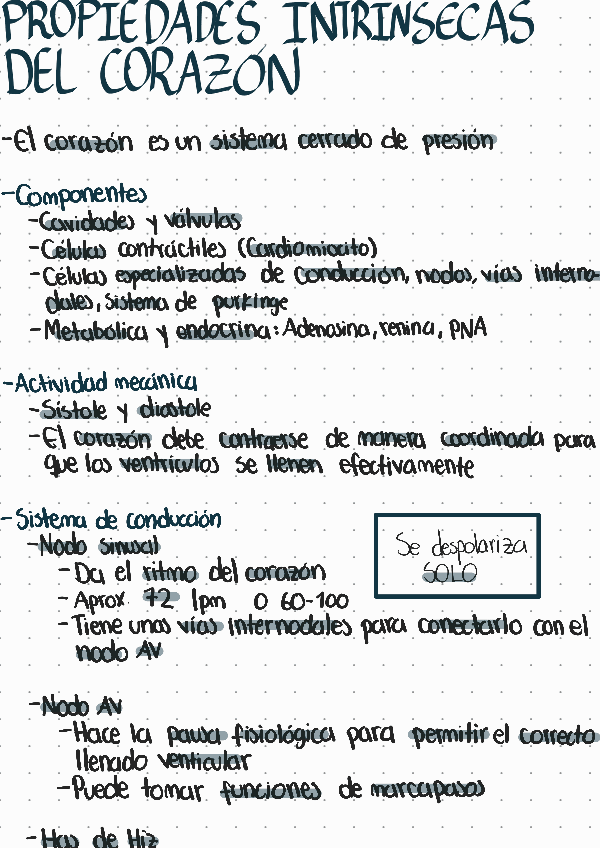 PROPIEDADES INTRINSECAS
DEL CORAZÓN
-El corazón es un sistema cerrado de presión
-Componentes
-Cavidades y válvulas
-Células contráctiles (Cardiomiocito)
-Células especializadas de conducción, nodos, vías interno-
dales, sistema de purkinge
-Metabólica y endocrina: Adenosina, renina, PNA
-Actividad mecánica
-Sístole y diástole
-El corazón debe contraerse de manera coordinada para
que los ventrículos se llenen efectivamente
-Sistema de conducción
-Nodo sinusal
-Da el ritmo del corazón
-Aprox. 72 lpm o 60-100
-Tiene unas vías internodales para conectarlo con el
nodo AV
Se despolariza
SOLO
-Nodo AV
-Hace la pausa fisiológica para permitir el correcto
llenado venticular
-Puede tomar funciones de marcapasos
-Has de Hiz